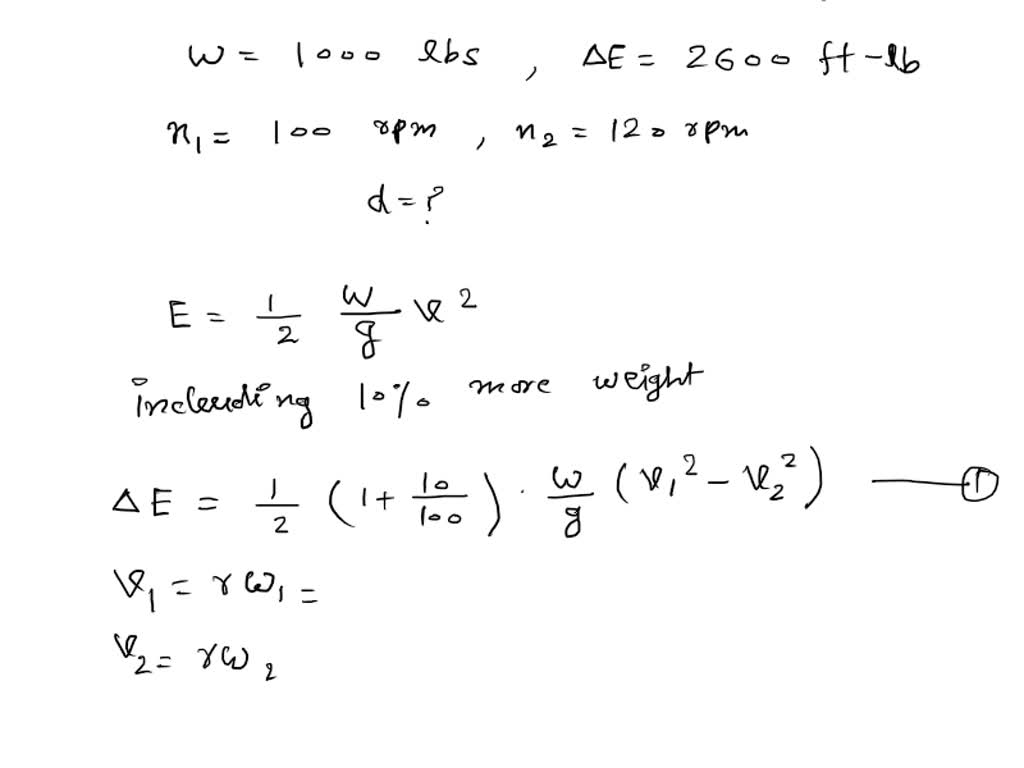 W = 1000 lbs , ΔE = 2600 ft-lb
n₁ = 100 rpm , n₂ = 120 rpm
d = ?
E = 1/2 W/g v²
including 10% more weight
ΔE = 1/2 (1 + 10/100) · W/g (v₁² - v₂²) —— ①
v₁ = rω₁ =
v₂ = rω₂